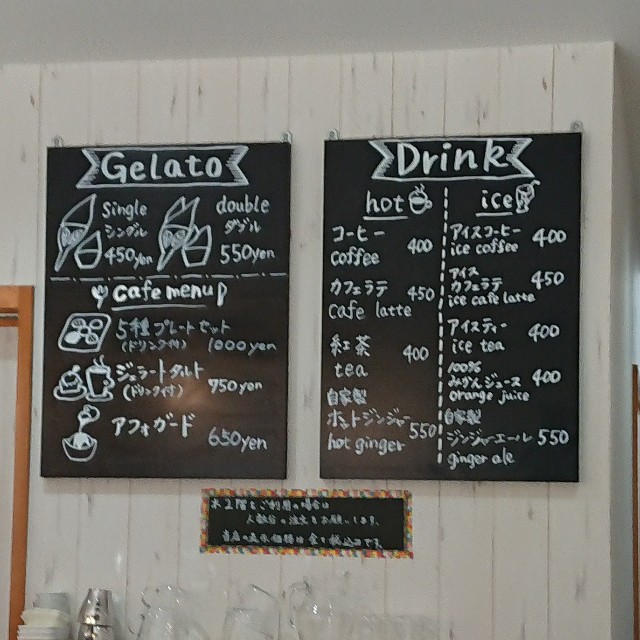 Gelato
single
シングル
450yen
double
ダブル
550yen
cafe menu
5種プレートセット
(ドリンク付) 1000yen
ジェラートタルト
(ドリンク付) 950yen
アフォガード
650yen
Drink
hot
コーヒー
coffee 400
カフェラテ
cafe latte 450
紅茶
tea 400
自家製
ホットジンジャー
hot ginger 550
ice
アイスコーヒー
ice coffee 400
アイス
カフェラテ
ice cafe latte 450
アイスティー
ice tea 400
100%
みかんジュース
orange juice 400
自家製
ジンジャーエール
ginger ale 550
※2階をご利用の場合は
人数分の注文をお願いします。
当店の表示価格は全て税込です。